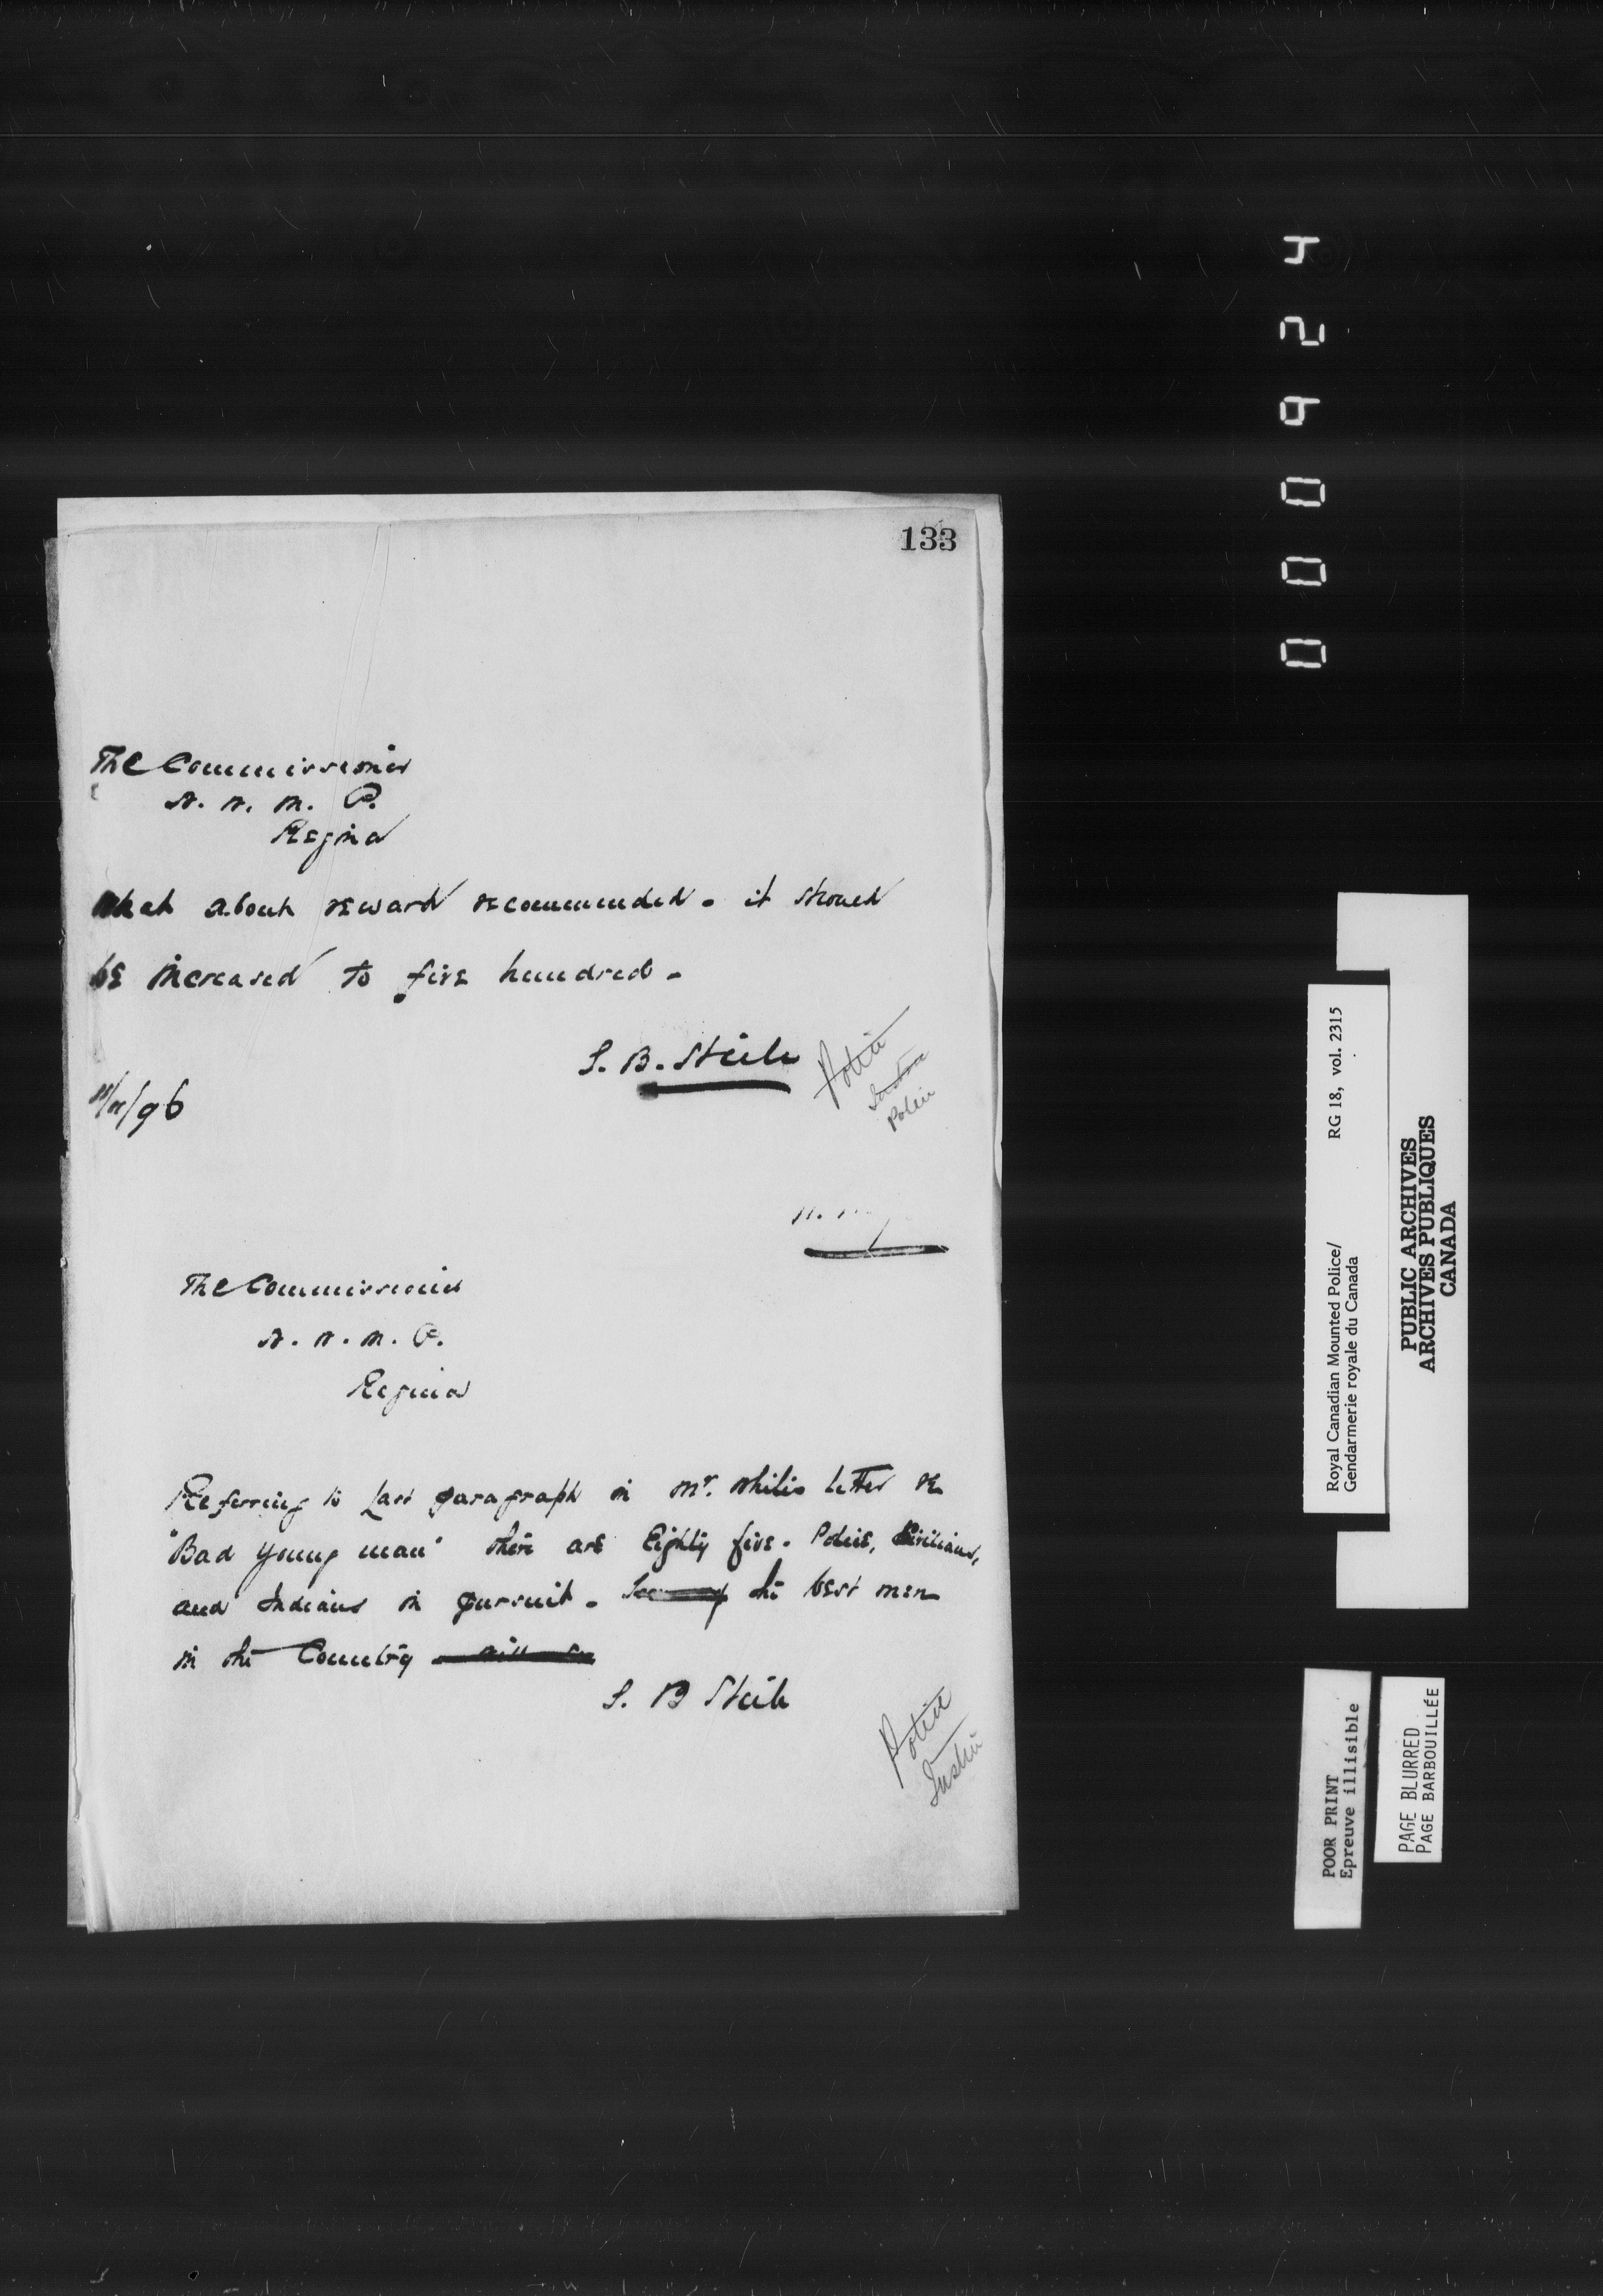 133
The Commissioner
N. W. M. P.
Regina
What about reward recommended. it should
be increased to five hundred.
S. B. Steele
Police
Police
/96
The Commissioner
N. W. M. P.
Regina
Referring to last paragraph in Mr. Whites letter re
"Bad young man" there are Eighty five. Police, Civilians,
and Indians in pursuit. the best men
in the Country
S. B Steele
Police
Justice
000924
RG 18, vol. 2315
Royal Canadian Mounted Police/
Gendarmerie royale du Canada
PUBLIC ARCHIVES
ARCHIVES PUBLIQUES
CANADA
POOR PRINT
Epreuve illisible
PAGE BLURRED
PAGE BARBOUILLÉE